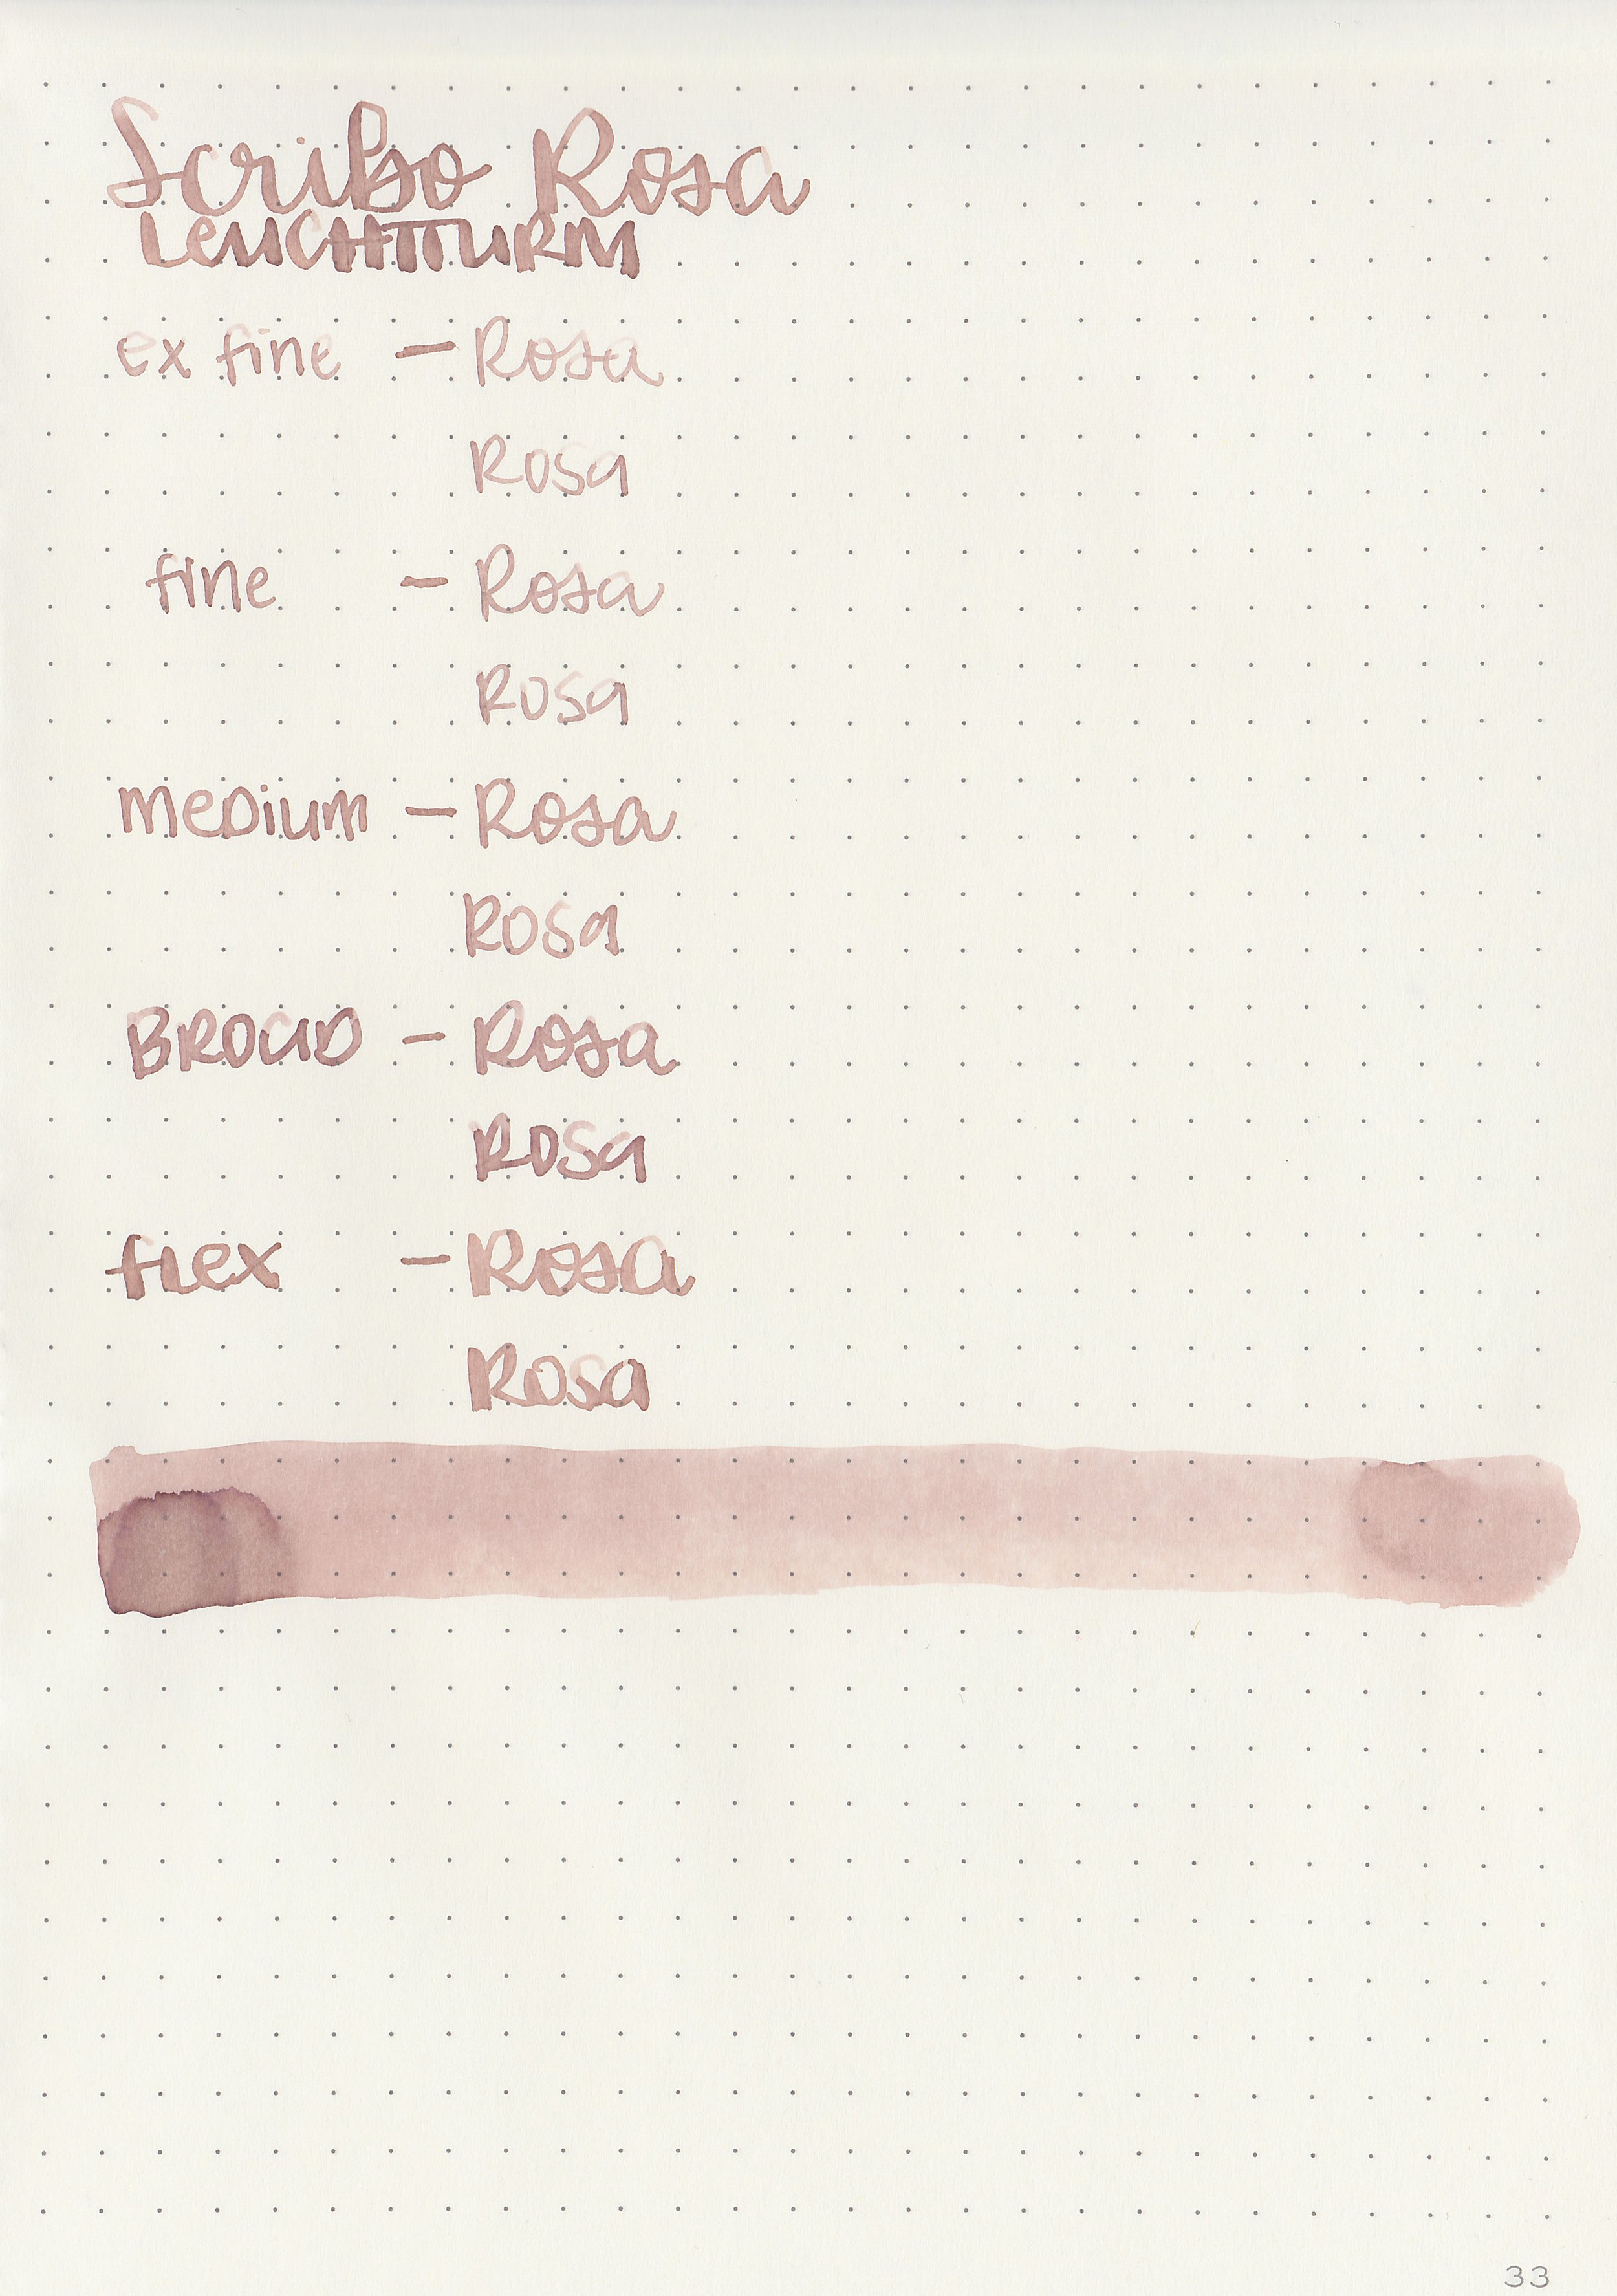 Scribo Rosa
LEUCHTTURM
ex fine - Rosa
Rosa
fine - Rosa
Rosa
MEDIUM - Rosa
Rosa
BROAD - Rosa
Rosa
flex - Rosa
Rosa
33